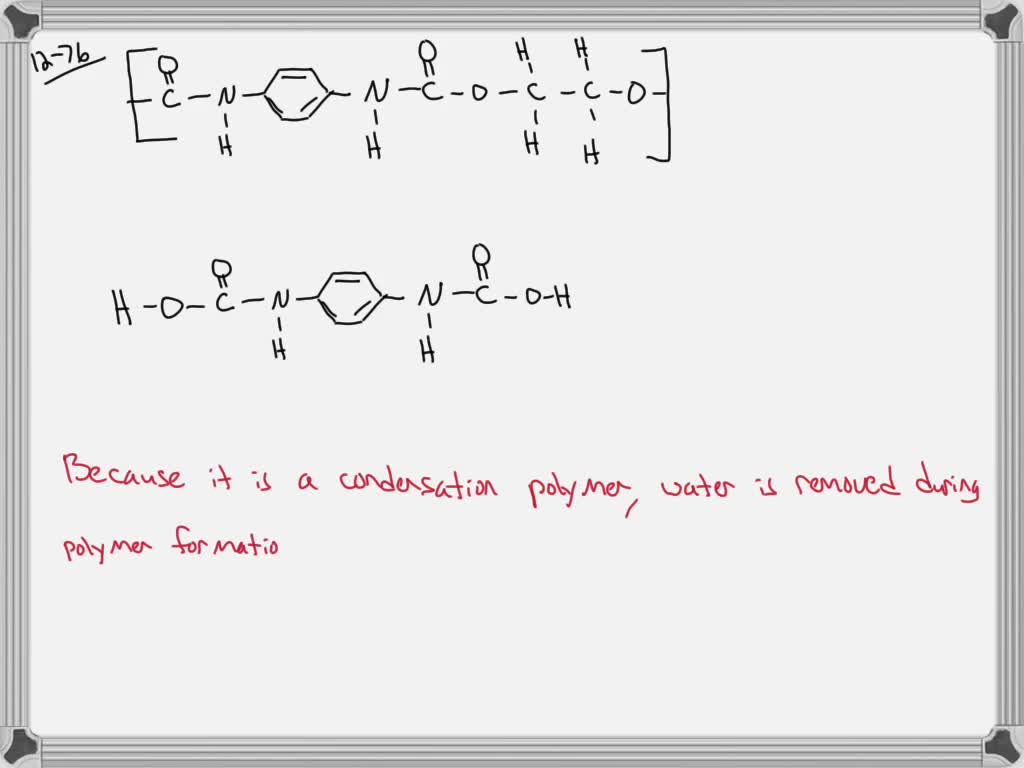 12-76
O O H H
C - N - N - C - O - C - C - O
H H H H
O O
H - O - C - N - N - C - O - H
H H
Because it is a condensation polymer, water is removed during
polymer formatio